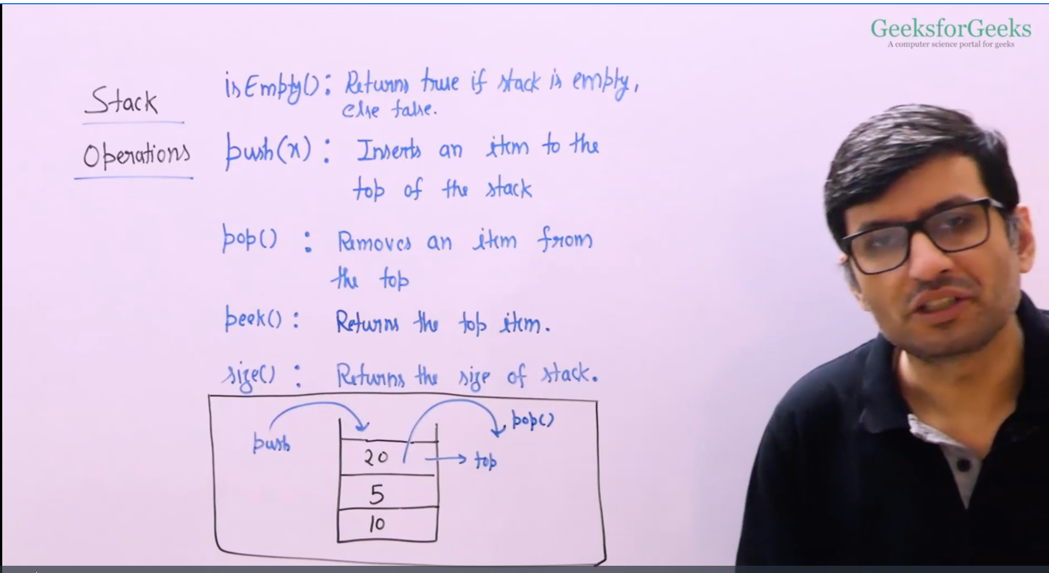 GeeksforGeeks
A computer science portal for geeks
Stack
Operations
isEmpty(): Returns true if stack is empty,
else false.
push(x): Inserts an item to the
top of the stack
pop() : Removes an item from
the top
peek(): Returns the top item.
size() : Returns the size of stack.
push
pop()
20
top
5
10